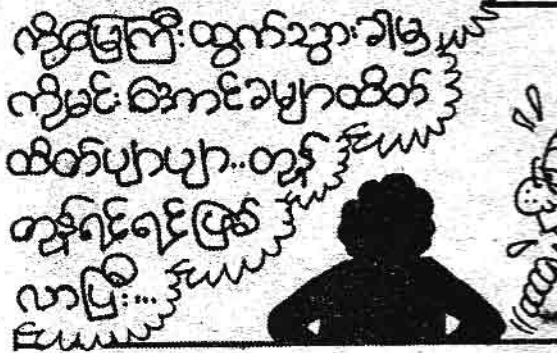 ကိုမြေကြီးထွက်သွားခါမှ
ကိုမင်းအောင်ခမျာထိတ်
ထိတ်ပျာပျာ..တုန်
တုန်ရင်ရင်ဖြစ်
လာပြီး...